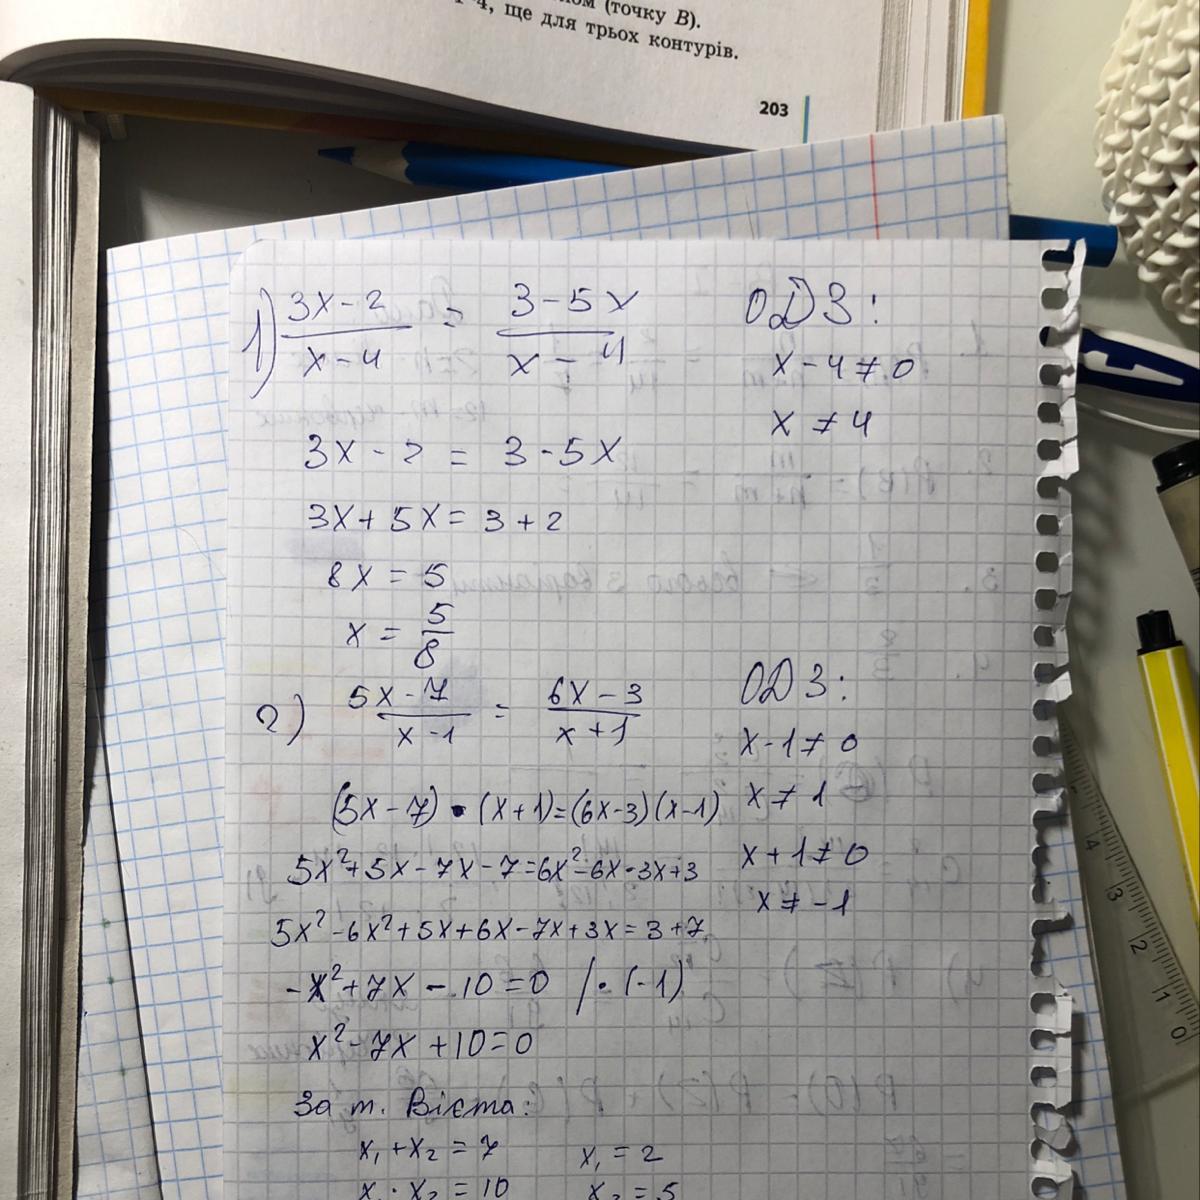 (точку B).
4, ще для трьох контурів.
203
1) (3x-2)/(x-4) = (3-5x)/(x-4)
ОДЗ:
x-4≠0
x≠4
3x-2 = 3-5x
3x+5x=3+2
8x=5
x=5/8
2) (5x-7)/(x-1) = (6x-3)/(x+1)
ОДЗ:
x-1≠0
x≠1
x+1≠0
x≠-1
(5x-7)•(x+1)=(6x-3)(x-1)
5x²+5x-7x-7=6x²-6x-3x+3
5x²-6x²+5x+6x-7x+3x=3+7
-x²+7x-10=0 /•(-1)
x²-7x+10=0
За т. Вієта:
x₁+x₂=7 x₁=2
x₁•x₂=10 x₂=5
14
13
12
11
0